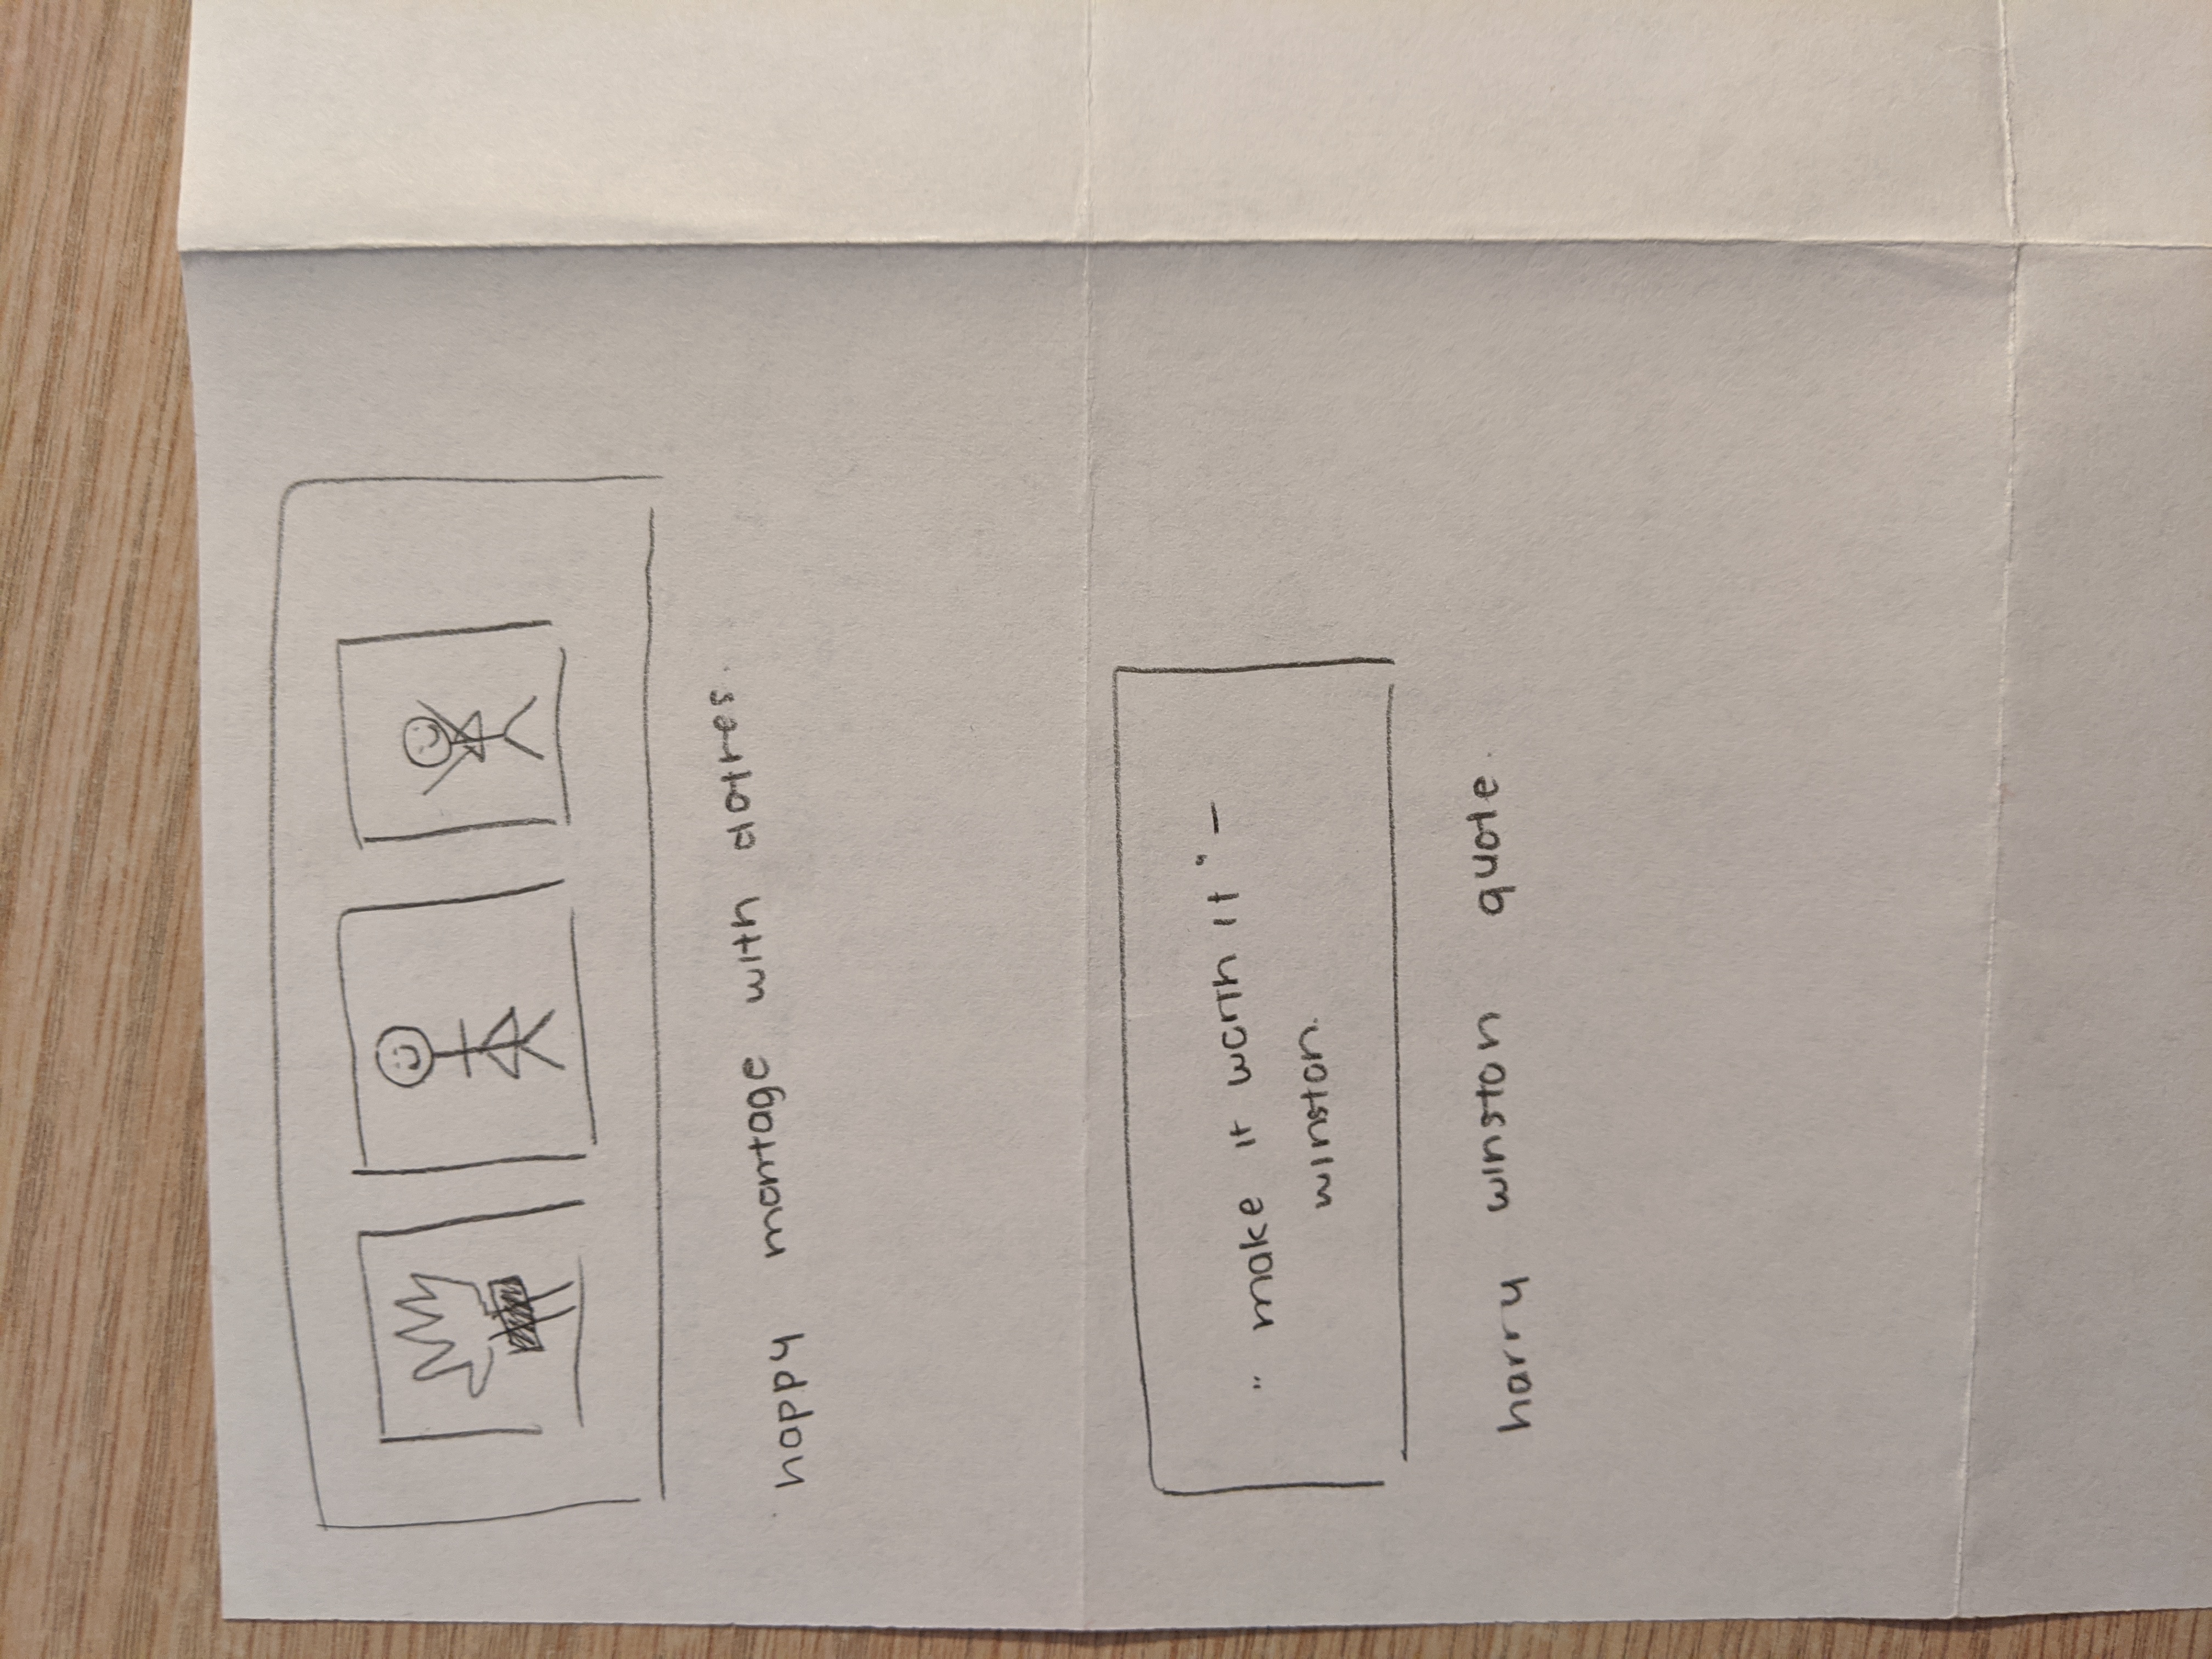 happy montage with dotres.
" make it worth it " –
winston.
harry winston quote.